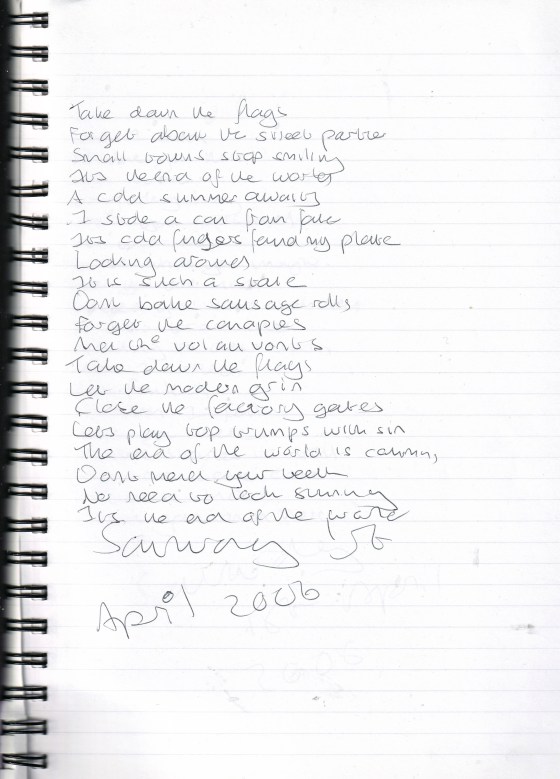 Take down the flags
Forget about the street partie
Small towns stop smiling
Its the end of the world
A cold summer awaits
I stole a car from fate
Its cold fingers found my plate
Looking around
It is such a state
Dont bake sausage rolls
Forget the canapies
the vol au vonts
Take down the flags
Let the modern grin
Close the factory gates
Lets play top trumps with sin
The end of the world is coming
Dont mend your teeth
No need to look stunning
Its the end of the world
April 2006